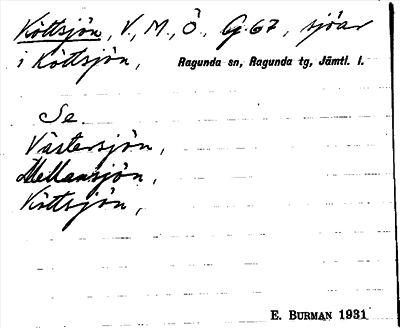 Köttsjön, V., M., Ö., G. 67, sjöar
i Köttsjön, Ragunda sn, Ragunda tg, Jämtl. l.
Se
Västersjön,
Mellansjön,
Köttsjön,
E. BURMAN 1931